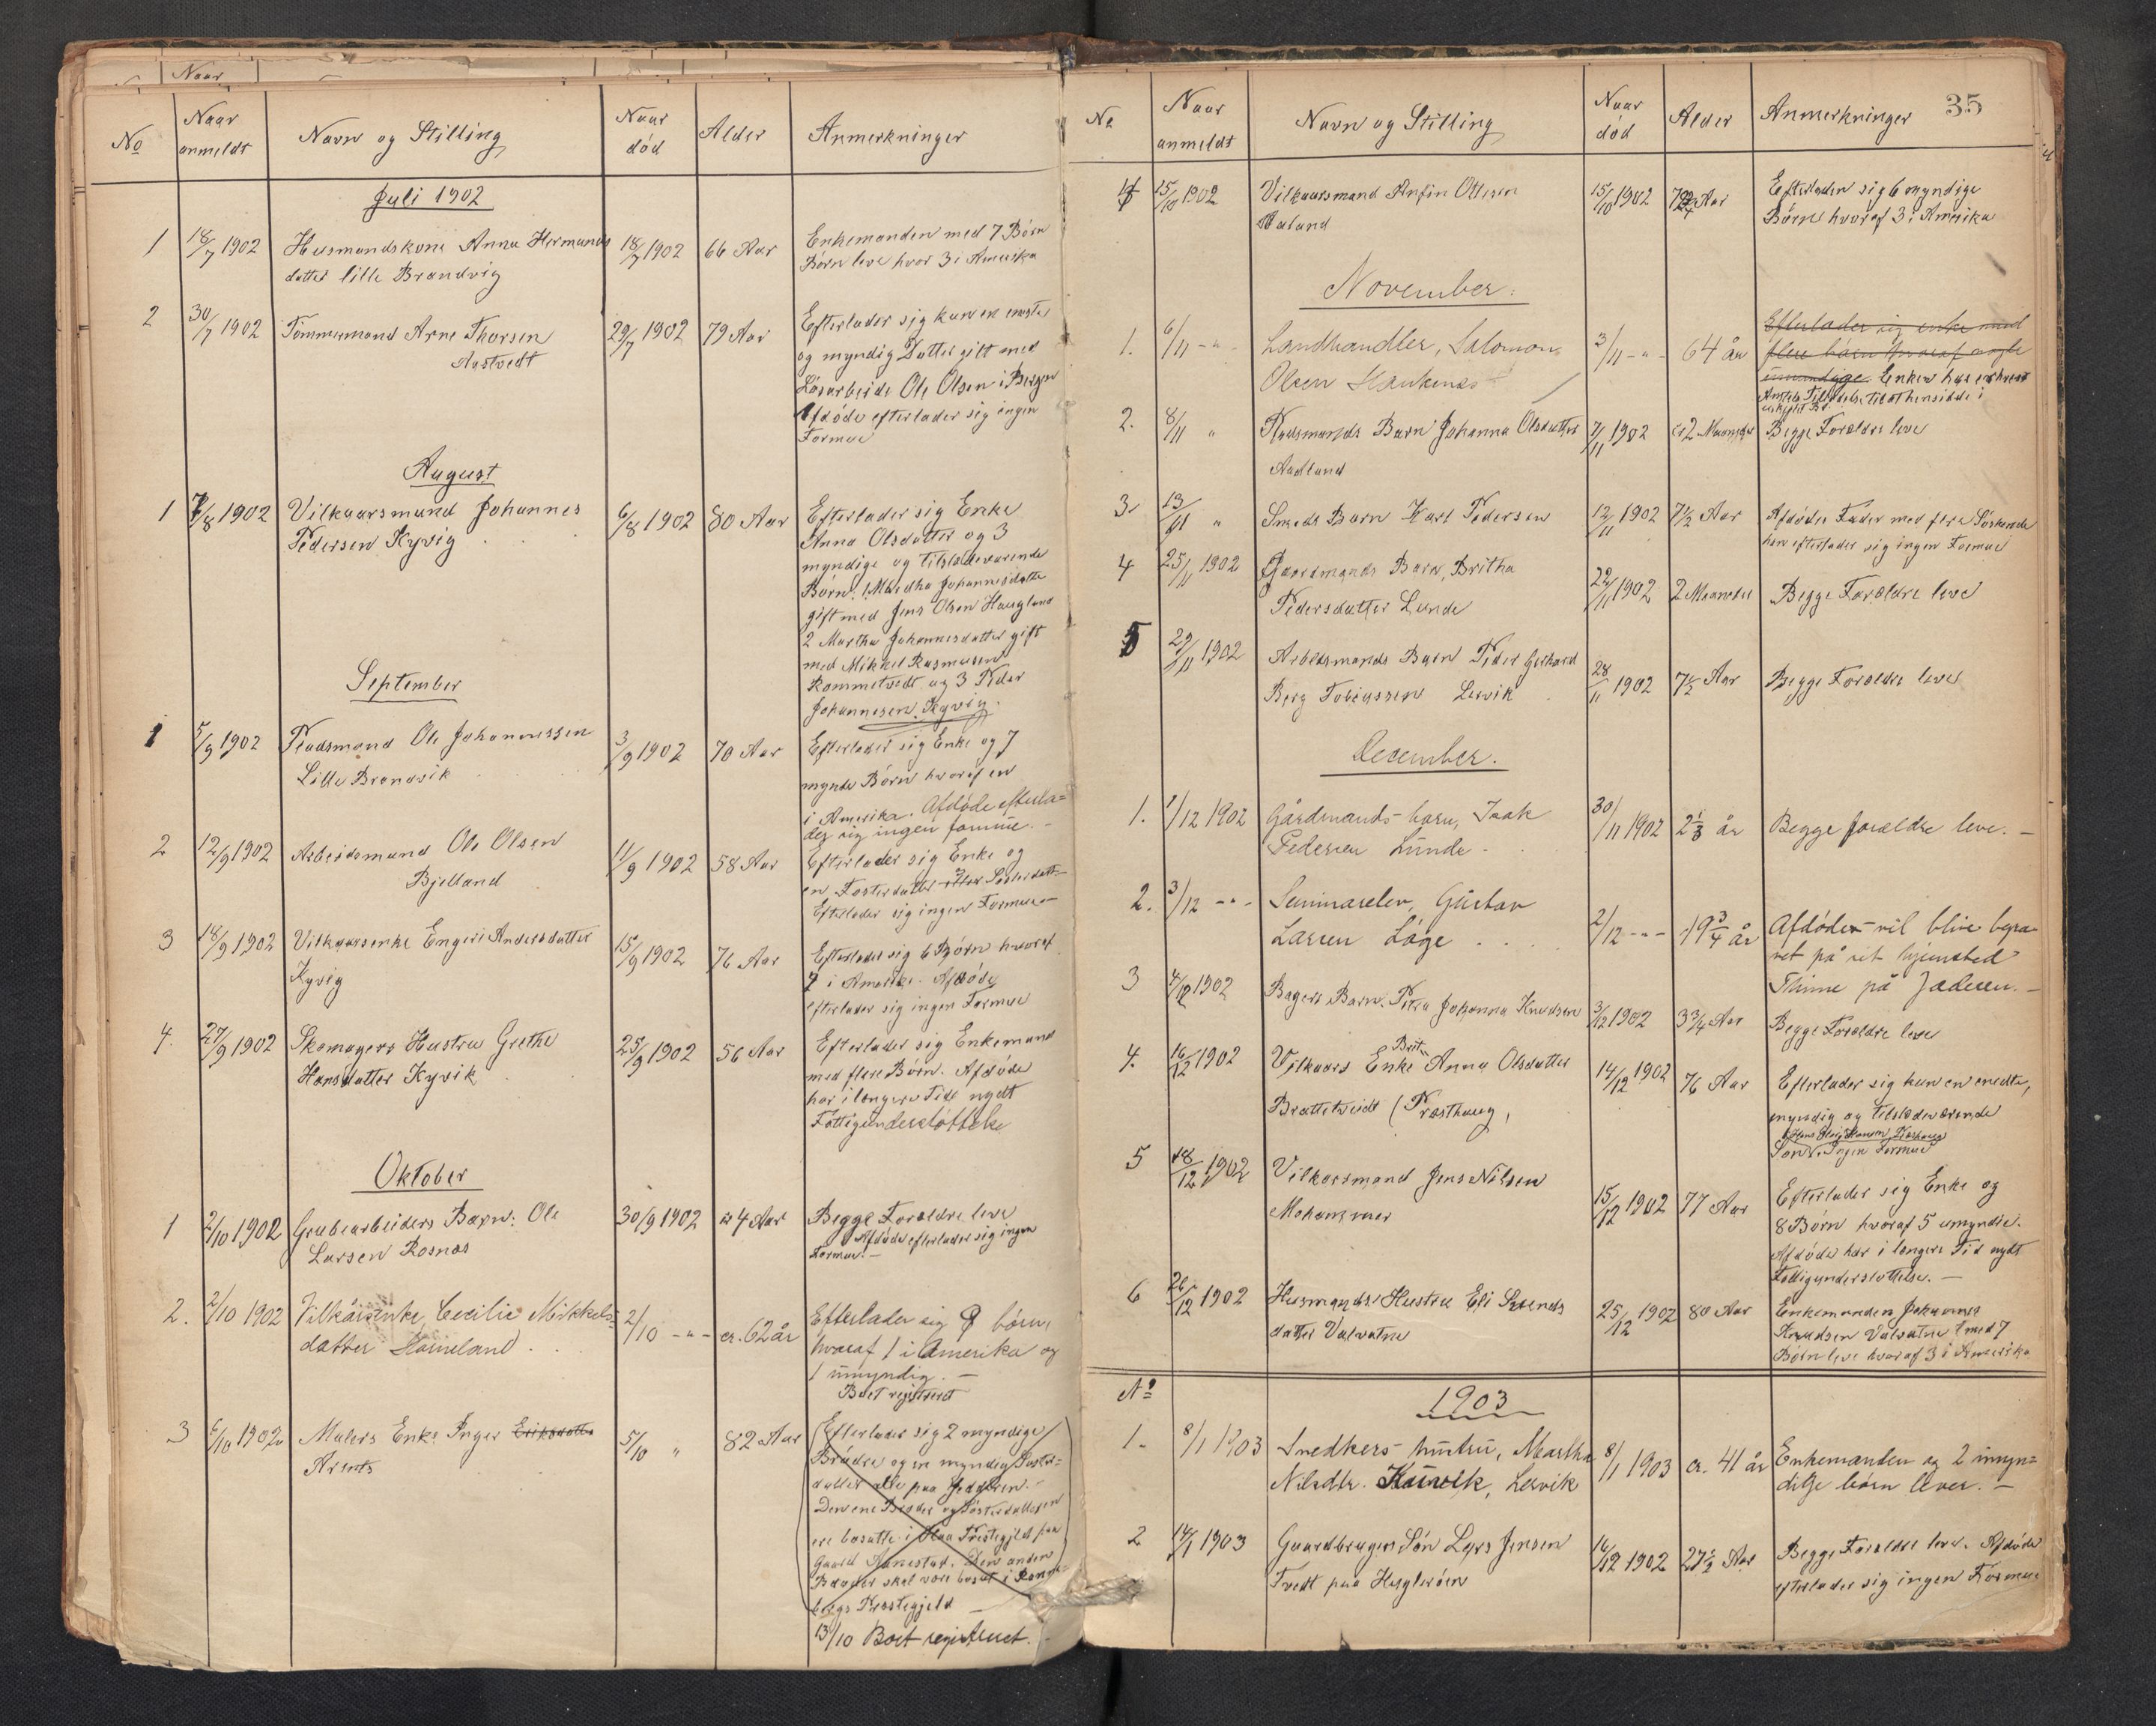 Naar
No
Naar anmeldt
Navn og Stilling
Naar død
Alder
Anmerkninger
Juli 1902
1 18/7 1902 Husmandskone Anna Hermunds 18/7 1902 66 Aar Enkemanden med 7 Børn
datter lille Brandvig Børn leve hvor 3 i Amerika
2 30/7 1902 Tømmermand Arne Thorsen 29/7 1902 79 Aar Efterlader sig kun en eneste
Aastvedt og myndig Datter gift med
Løsarbeider Ole Olsen i Bergen
Afdøde efterlader sig ingen
Formue
August
1 7/8 1902 Vilkaarsmand Johannes 6/8 1902 80 Aar Efterlader sig Enke
Pedersen Kyvig Anna Olsdatter og 3
myndige og tilstedeværende
Børn: 1 Johannesdatter
gift med Jens Olsen Haugland
2 Martha Johannesdatter gift
med Mikkel Rasmusen
Rommetvedt og 3 Peder
Johannesen Kyvig.
September
1 5/9 1902 Pladsmand Ole Johannessen 3/9 1902 70 Aar Efterlader sig Enke og 7
Lille Brandvik mynde Børn hvoraf en
i Amerika. Afdøde efterla=
der sig ingen formue. –
2 12/9 1902 Arbeidsmand Ole Olsen 11/9 1902 58 Aar Efterlader sig Enke og
Bjelland en Fosterdatter Søsterdatter
Efterlader sig ingen Formue –
3 18/9 1902 Vilkaarsenke Engeri Andersdatter 15/9 1902 76 Aar Efterlader sig 6 Børn hvoraf
Kyvig i Amerika. Afdøde
efterlader sig ingen Formue
4. 27/9 1902 Skomagers Hustru Grethe 25/9 1902 56 Aar Efterlader sig Enkemand
Hansdatter Kyvik med flere Børn. Afdøde
har i længere Tid nydt
Fattigunderstøttelse
Oktober
1 2/10 1902 Grubearbeiders Barn: Ole 30/9 1902 4 Aar Begge Forældre leve
Larsen Rosnæs Afdøde efterlader sig ingen
Formue. –
2. 2/10 1902 Vilkårsenke, Cecilie Mikkels- 2/10 -"- ca. 62 år Efterlader sig 9 børn,
datter Høineland hvoraf 1 i Amerika og
1 umyndig. –
Boet registreret
3 6/10 1902 Malers Enke Inger Eriksdatter 5/10 " 82 Aar Efterlader sig 2 myndige
Arents Brødre og en myndig Søster=
datter alle paa Jedderen. –
Den ene Broder og Søsterdatteren
ere bosatte i Præstegjeld paa
Gaard . Den anden
Broder skal være bosat i
Præstegjeld –
13/10 Boet registreret. –
35
No
Naar anmeldt
Navn og Stilling
Naar død
Alder
Anmerkninger
15/10 1902 Vilkaarsmand Anfin Ottesen 15/10 1902 Aar Efterlader sig 6 myndige
Aaland Børn hvoraf 3 i Amerika
November.
1. 6/11 -"- Landhandler, Salomon 3/11 -"- 64 år Efterlader sig enke med
Olsen Haukenæs flere børn hvoraf nogle
umyndige Enken har erhvervet
Amtets Tilladelse til at hensidde i
uskiftet Bo
2. 8/11 " Pladsmands Barn Johanna Olsdatter 7/11 1902 2 Maaneder Begge Forældre leve
Aadland
3. 13/11 " Smeds Barn Karl Pedersen 12/11 1902 7 1/2 Aar Afdødes Fader med flere Søskende
han efterlader sig ingen Formue
4 25/11 1902 Gaardmands Barn, Britha 22/11 1902 2 Maaneder Begge Forældre leve
Pedersdatter Lunde
5 29/11 1902 Arbeidsmands Barn Peder Gerhard 28/11 1902 7 1/2 Aar Begge Forældre lever
Berg Tobiassen Lervik
December.
1. 1/12 1902 Gårdmands-barn, Isak 30/11 1902 2 1/3 år Begge forældre leve. –
Pedersen Lunde.
2. 3/12 -"- Seminarelev, Gustav 2/12 -"- 19 3/4 år Afdøde vil blive begra-
Larsen Løge vet på sit hjemsted
Thime på Jæderen. –
3 4/12 1902 Bagers Barn. Petra Johanna Knudsen 3/12 1902 3 3/4 Aar Begge Forældre leve
4. 16/12 1902 Vilkaars Enke Brit Anna Olsdatter 14/12 1902 76 Aar Efterlader sig kun en eneste,
Brattetveidt (Præsthaug, myndig og tilstedeværende
Søn. Ingen Formue
5 18/12 1902 Vilkarsmand Jens Nilsen 15/12 1902 77 Aar Efterlader sig Enke og
Mehammer 8 Børn hvoraf 5 umyndie.
Afdøde har i længere Tid nydt
Fattigunderstøttelse. –
6 26/12 1902 Husmands Hustru Eli Svends 25/12 1902 80 Aar Enkemanden Johannes
datter Valvatne Knudsen Valvatne med 7
Børn leve hvoraf 3 i Amerika
No 1903
1. 8/1 1903 Snedkers-hustru, Martha 8/1 1903 ca. 41 år Enkemanden og 2 umyn=
Nilsdtr. , Lervik dige børn lever. –
2 14/1 1903 Gaardbrugers Søn Lars Jensen 16/12 1902 27 1/2 Aar Begge Forældre lever. Afdøde
Tvedt paa Huglenøen efterlader sig ingen Formue